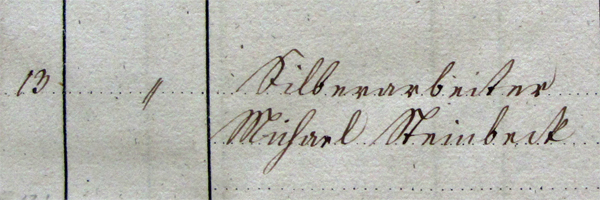 13 " Silberarbeiter
Michael Steinbeck